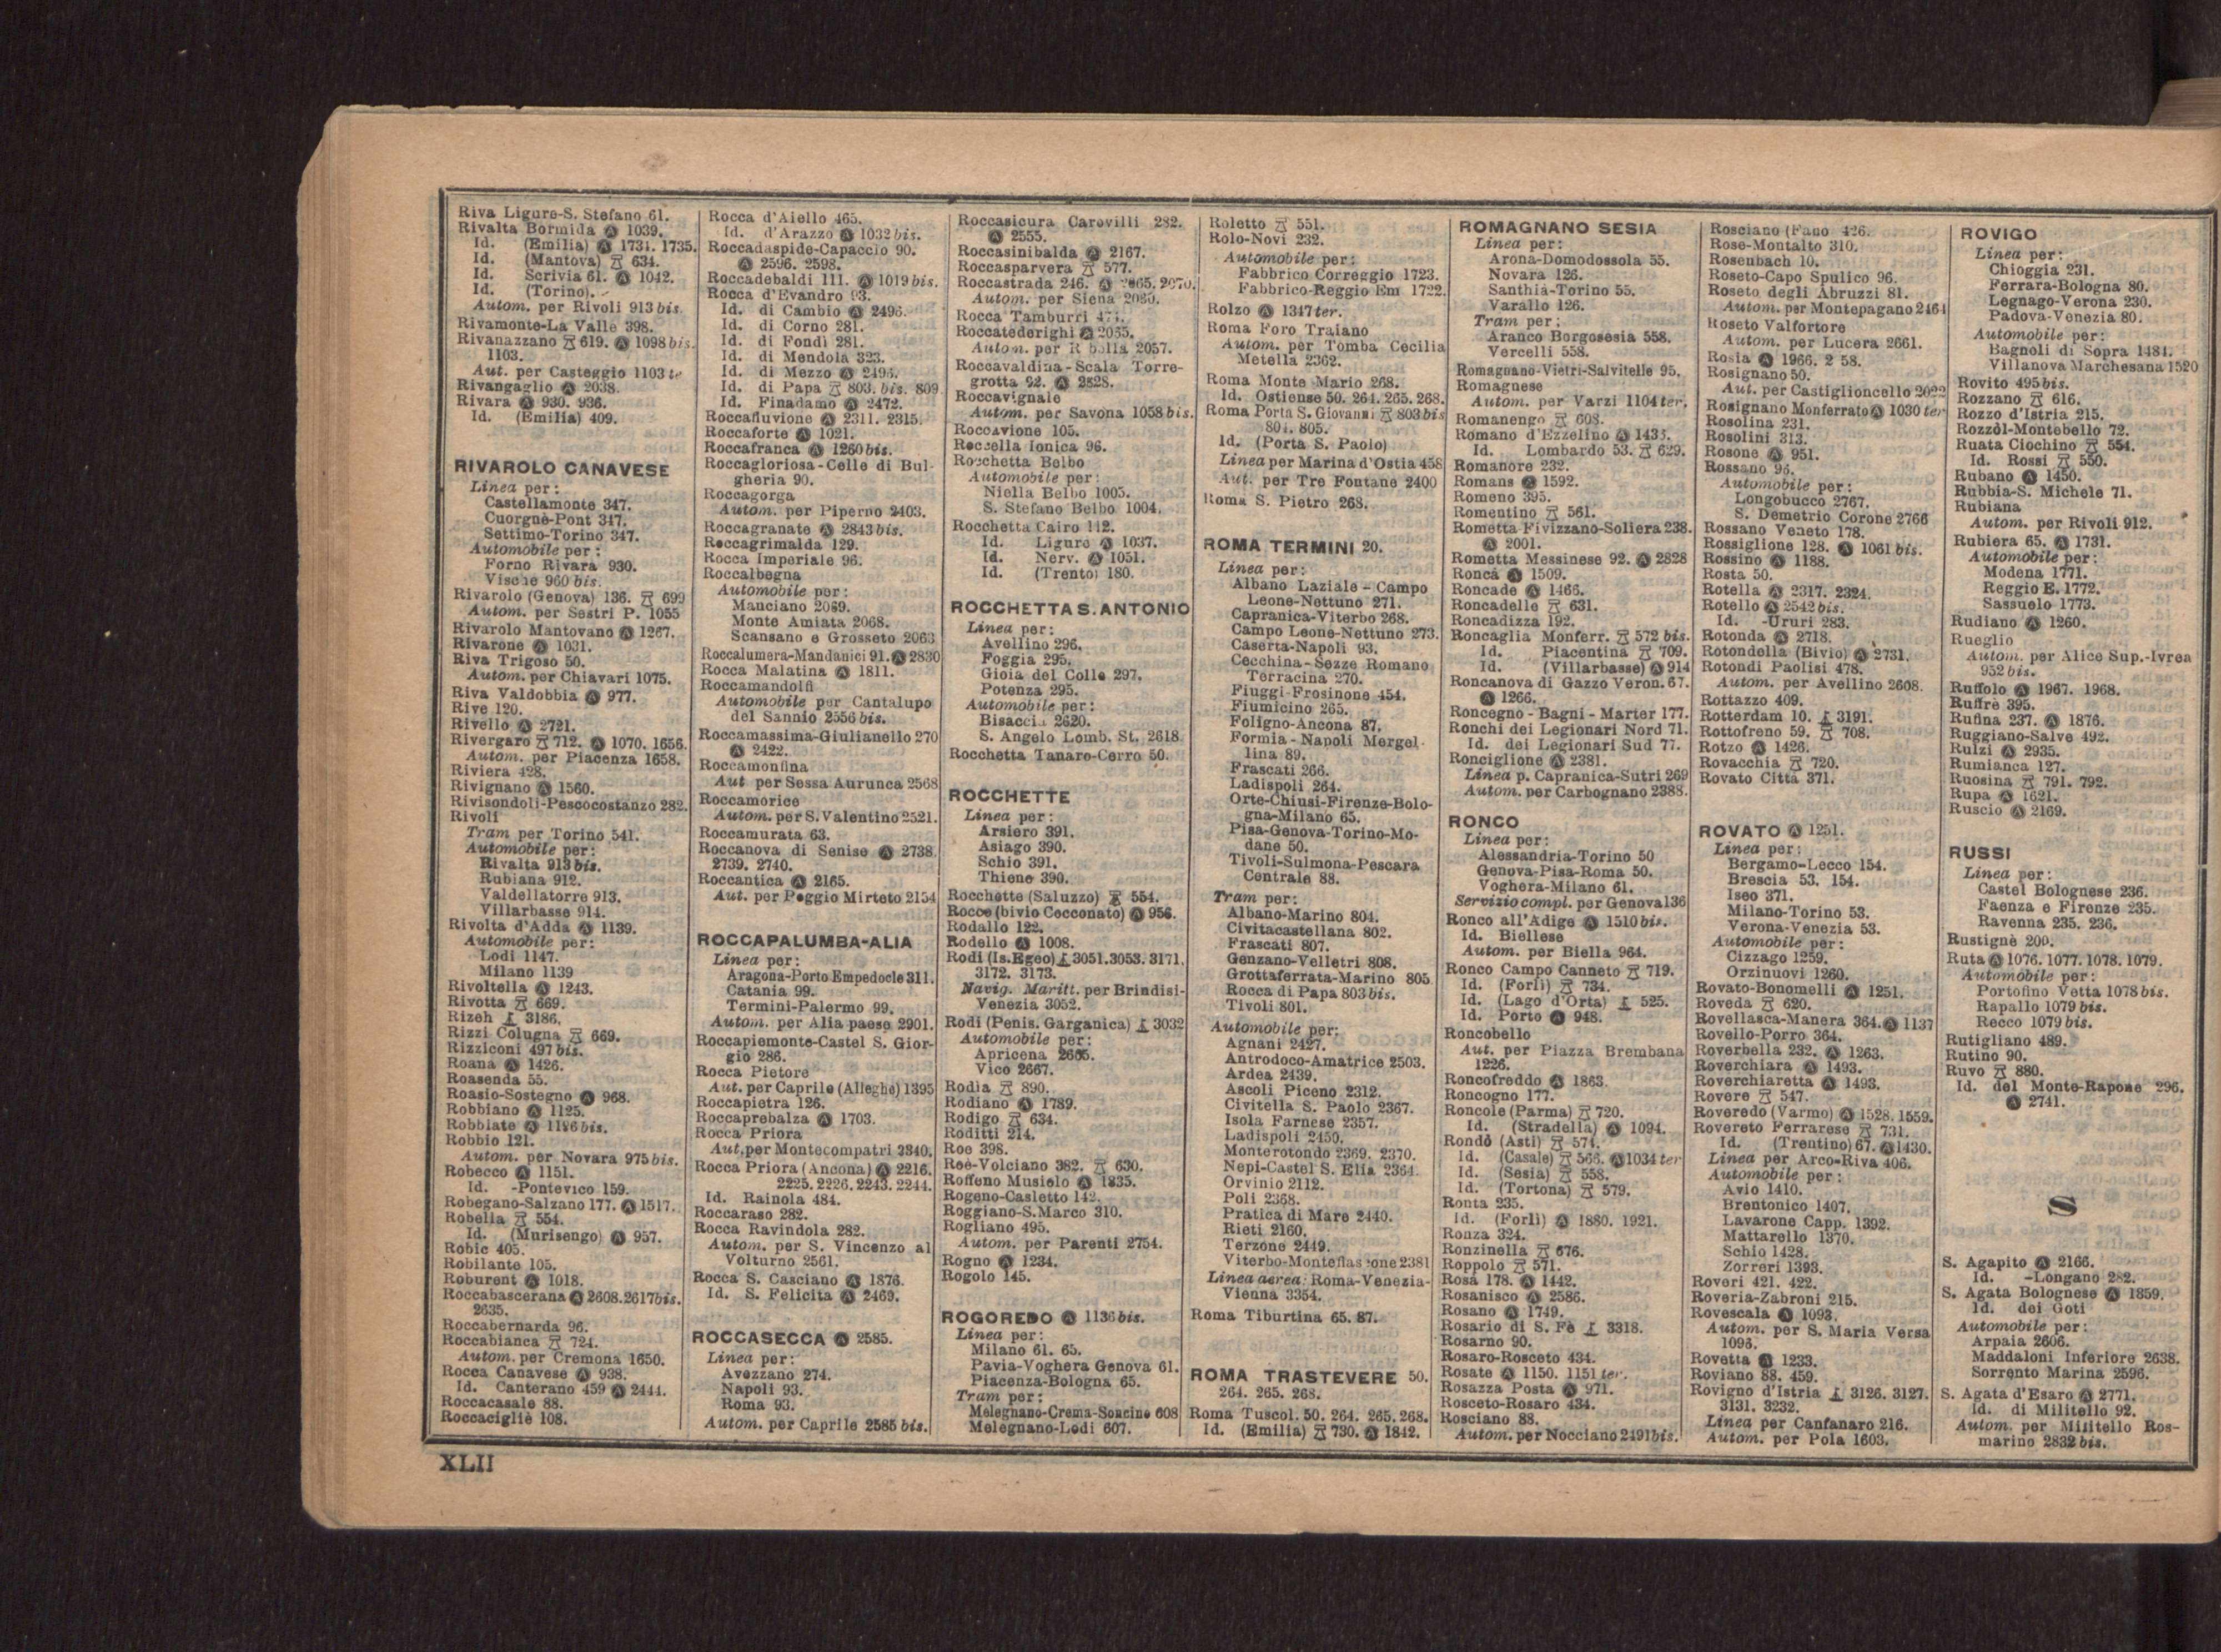 Riva Ligure-S. Stefano 61.
Rivalta Bormida Ⓐ 1039.
Id. (Emilia) Ⓐ 1731. 1735.
Id. (Mantova) 634.
Id. Scrivia 61. Ⓐ 1042.
Id. (Torino).
Autom. per Rivoli 913 bis
Rivamonte-La Valle 398.
Rivanazzano 619. Ⓐ 1098 bis.
1103.
Aut. per Casteggio 1103
Rivangaglio Ⓐ 2038.
Rivara Ⓐ 930. 936.
Id. (Emilia) 409.
RIVAROLO CANAVESE
Linea per:
Castellamonte 347.
Cuorgnè-Pont 347.
Settimo-Torino 347.
Automobile per:
Forno Rivara 930.
Vische 960 bis.
Rivarolo (Genova) 136. 699
Autom. per Sestri P. 1055
Rivarolo Mantovano Ⓐ 1267.
Rivarone Ⓐ 1031.
Riva Trigoso 50.
Autom. per Chiavari 1075.
Riva Valdobbia Ⓐ 977.
Rive 120.
Rivello Ⓐ 2721.
Rivergaro 712. Ⓐ 1070. 1656.
Autom. per Piacenza 1658.
Riviera 428.
Rivignano Ⓐ 1560.
Rivisondoli-Pescocostanzo 282.
Rivoli
Tram per Torino 541.
Automobile per:
Rivalta 913 bis.
Rubiana 912.
Valdellatorre 913.
Villarbasse 914.
Rivolta d'Adda Ⓐ 1139.
Automobile per:
Lodi 1147.
Milano 1139
Rivoltella Ⓐ 1243.
Rivotta 669.
Rizeh 3186.
Rizzi Colugna 669.
Rizziconi 497 bis.
Roana Ⓐ 1426.
Roasenda 55.
Roasio-Sostegno Ⓐ 968.
Robbiano Ⓐ 1125.
Robbiate Ⓐ 1126 bis.
Robbio 121.
Autom. per Novara 975 bis.
Robecco Ⓐ 1151.
Id. -Pontevico 159.
Robegano-Salzano 177. Ⓐ 1517.
Robella 554.
Id. (Murisengo) Ⓐ 957.
Robic 405.
Robilante 105.
Roburent Ⓐ 1018.
Roccabascerana Ⓐ 2608. 2617 bis.
2635.
Roccabernarda 96.
Roccabianca 724.
Autom. per Cremona 1650.
Rocca Canavese Ⓐ 938.
Id. Canterano 459 Ⓐ 2444.
Roccacasale 88.
Roccacigliè 108.
Rocca d'Aiello 465.
Id. d'Arazzo Ⓐ 1032 bis.
Roccadaspide-Capaccio 90.
Ⓐ 2596. 2598.
Roccadebaldi 111. Ⓐ 1019 bis.
Rocca d'Evandro 93.
Id. di Cambio Ⓐ 2496.
Id. di Corno 281.
Id. di Fondi 281.
Id. di Mendola 323.
Id. di Mezzo Ⓐ 2496.
Id. di Papa 803. bis. 809
Id. Finadamo Ⓐ 2472.
Roccafluvione Ⓐ 2311. 2315.
Roccaforte Ⓐ 1021.
Roccafranca Ⓐ 1260 bis.
Roccagloriosa-Celle di Bul-
gheria 90.
Roccagorga
Autom. per Piperno 2403.
Roccagranate Ⓐ 2843 bis.
Roccagrimalda 129.
Rocca Imperiale 96.
Roccalbegna
Automobile per:
Manciano 2089.
Monte Amiata 2068.
Scansano e Grosseto 2063
Roccalumera-Mandanici 91. Ⓐ 2830
Rocca Malatina Ⓐ 1811.
Roccamandolfi
Automobile per Cantalupo
del Sannio 2556 bis.
Roccamassima-Giulianello 270
Ⓐ 2422.
Roccamonfina
Aut per Sessa Aurunca 2568
Roccamorice
Autom. per S. Valentino 2521.
Roccamurata 63.
Roccanova di Senise Ⓐ 2738.
2739. 2740.
Roccantica Ⓐ 2165.
Aut. per Poggio Mirteto 2154
ROCCAPALUMBA-ALIA
Linea per:
Aragona-Porto Empedocle 311.
Catania 99.
Termini-Palermo 99.
Autom. per Alia paese 2901.
Roccapiemonte-Castel S. Gior-
gio 286.
Rocca Pietore
Aut. per Caprile (Alleghe) 1395
Roccapietra 126.
Roccaprebalza Ⓐ 1703.
Rocca Priora
Aut. per Montecompatri 2340.
Rocca Priora (Ancona) Ⓐ 2216.
2225. 2226. 2243. 2244.
Id. Rainola 484.
Roccaraso 282.
Rocca Ravindola 282.
Autom. per S. Vincenzo al
Volturno 2561.
Rocca S. Casciano Ⓐ 1876.
Id. S. Felicita Ⓐ 2469.
ROCCASECCA Ⓐ 2585.
Linea per:
Avezzano 274.
Napoli 93.
Roma 93.
Autom. per Caprile 2585 bis.
Roccasicura Carovilli 282.
Ⓐ 2555.
Roccasinibalda Ⓐ 2167.
Roccasparvera 577.
Roccastrada 246. Ⓐ 2065. 2070.
Autom. per Siena 2080.
Rocca Tamburri
Roccatederighi Ⓐ 2065.
Autom. per Ribolla 2057.
Roccavaldina-Scala Torre-
grotta 92. Ⓐ 2828.
Roccavignale
Autom. per Savona 1058 bis.
Roccavione 105.
Roccella Ionica 96.
Rocchetta Belbo
Automobile per:
Niella Belbo 1005.
S. Stefano Belbo 1004.
Rocchetta Cairo 112.
Id. Ligure Ⓐ 1037.
Id. Nerv. Ⓐ 1051.
Id. (Trento) 180.
ROCCHETTA S. ANTONIO
Linea per:
Avellino 296.
Foggia 295.
Gioia del Colle 297.
Potenza 295.
Automobile per:
Bisaccia 2620.
S. Angelo Lomb. St. 2618
Rocchetta Tanaro-Cerro 50.
ROCCHETTE
Linea per:
Arsiero 391.
Asiago 390.
Schio 391.
Thiene 390.
Rocchette (Saluzzo) 554.
Rocce (bivio Cocconato) Ⓐ 956.
Rodallo 122.
Rodello Ⓐ 1008.
Rodi (Is. Egeo) 3051. 3053. 3171.
3172. 3173.
Navig. Maritt. per Brindisi-
Venezia 3052.
Rodi (Penis. Garganica) 3032
Automobile per:
Apricena 2665.
Vico 2667.
Rodia 890.
Rodiano Ⓐ 1789.
Rodigo 634.
Roditti 214.
Roe 398.
Roè-Volciano 382. 630.
Roffeno Musiolo Ⓐ 1835.
Rogeno-Casletto 142.
Roggiano-S. Marco 310.
Rogliano 495.
Autom. per Parenti 2754.
Rogno Ⓐ 1234.
Rogolo 145.
ROGOREDO Ⓐ 1136 bis.
Linea per:
Milano 61. 65.
Pavia-Voghera Genova 61.
Piacenza-Bologna 65.
Tram per:
Melegnano-Crema-Soncino 608
Melegnano-Lodi 607.
Roletto 551.
Rolo-Novi 232.
Automobile per:
Fabbrico Correggio 1723.
Fabbrico-Reggio Em 1722.
Rolzo Ⓐ 1347 ter.
Roma Foro Traiano
Autom. per Tomba Cecilia
Metella 2362.
Roma Monte Mario 268.
Id. Ostiense 50. 264. 265. 268.
Roma Porta S. Giovanni 803 bis
804. 805.
Id. (Porta S. Paolo)
Linea per Marina d'Ostia 458
Aut. per Tre Fontane 2400
Roma S. Pietro 268.
ROMA TERMINI 20.
Linea per:
Albano Laziale - Campo
Leone-Nettuno 271.
Capranica-Viterbo 268.
Campo Leone-Nettuno 273.
Caserta-Napoli 93.
Cecchina-Sezze Romano
Terracina 270.
Fiuggi-Frosinone 454.
Fiumicino 265.
Foligno-Ancona 87.
Formia-Napoli Mergel-
lina 89.
Frascati 266.
Ladispoli 264.
Orte-Chiusi-Firenze-Bolo-
gna-Milano 65.
Pisa-Genova-Torino-Mo-
dane 50.
Tivoli-Sulmona-Pescara
Centrale 88.
Tram per:
Albano-Marino 804.
Civitacastellana 802.
Frascati 807.
Genzano-Velletri 808.
Grottaferrata-Marino 805
Rocca di Papa 803 bis.
Tivoli 801.
Automobile per:
Agnani 2427.
Antrodoco-Amatrice 2503.
Ardea 2439.
Ascoli Piceno 2312.
Civitella S. Paolo 2367.
Isola Farnese 2357.
Ladispoli 2450.
Monterotondo 2369. 2370.
Nepi-Castel S. Elia 2364.
Orvinio 2112.
Poli 2368.
Pratica di Mare 2440.
Rieti 2160.
Terzone 2449.
Viterbo-Montefiascone 2381
Linea aerea: Roma-Venezia-
Vienna 3354.
Roma Tiburtina 65. 87.
ROMA TRASTEVERE 50.
264. 265. 268.
Roma Tuscol. 50. 264. 265. 268.
Id. (Emilia) 730. Ⓐ 1842.
ROMAGNANO SESIA
Linea per:
Arona-Domodossola 55.
Novara 126.
Santhià-Torino 55.
Varallo 126.
Tram per:
Aranco Borgosesia 558.
Vercelli 558.
Romagnano-Vietri-Salvitelle 95.
Romagnese
Autom. per Varzi 1104 ter.
Romanengo 608.
Romano d'Ezzelino Ⓐ 1435.
Id. Lombardo 53. 629.
Romanore 232.
Romans Ⓐ 1592.
Romeno 395.
Romentino 561.
Rometta Fivizzano-Soliera 238.
Ⓐ 2001.
Rometta Messinese 92. Ⓐ 2828
Roncà Ⓐ 1509.
Roncade Ⓐ 1466.
Roncadelle 631.
Roncadizza 192.
Roncaglia Monferr. 572 bis.
Id. Piacentina 709.
Id. (Villarbasse) Ⓐ 914
Roncanova di Gazzo Veron. 67.
Ⓐ 1266.
Roncegno-Bagni-Marter 177.
Ronchi dei Legionari Nord 71.
Id. dei Legionari Sud 77.
Ronciglione Ⓐ 2381.
Linea p. Capranica-Sutri 269
Autom. per Carbognano 2388.
RONCO
Linea per:
Alessandria-Torino 50
Genova-Pisa-Roma 50.
Voghera-Milano 61.
Servizio compl. per Genova 136
Ronco all'Adige Ⓐ 1510 bis.
Id. Biellese
Autom. per Biella 964.
Ronco Campo Canneto 719.
Id. (Forlì) 734.
Id. (Lago d'Orta) 525.
Id. Porto Ⓐ 948.
Roncobello
Aut. per Piazza Brembana
1226.
Roncofreddo Ⓐ 1863.
Roncogno 177.
Roncole (Parma) 720.
Id. (Stradella) Ⓐ 1094.
Rondò (Asti) 574.
Id. (Casale) 566. Ⓐ 1034 ter
Id. (Sesia) 558.
Id. (Tortona) 579.
Ronta 235.
Id. (Forlì) Ⓐ 1880. 1921.
Ronza 324.
Ronzinella 676.
Roppolo 571.
Rosà 178. Ⓐ 1442.
Rosanisco Ⓐ 2586.
Rosano Ⓐ 1749.
Rosario di S. Fè 3318.
Rosarno 90.
Rosaro-Rosceto 434.
Rosate Ⓐ 1150. 1151 ter.
Rosazza Posta Ⓐ 971.
Rosceto-Rosaro 434.
Rosciano 88.
Autom. per Nocciano 2491 bis.
Rosciano (Fano 426.
Rose-Montalto 310.
Rosenbach 10.
Roseto-Capo Spulico 96.
Roseto degli Abruzzi 81.
Autom. per Montepagano 2464
Roseto Valfortore
Autom. per Lucera 2661.
Rosia Ⓐ 1966.
Rosignano 50.
Aut. per Castiglioncello 2022
Rosignano Monferrato Ⓐ 1030 ter
Rosolina 231.
Rosolini 313.
Rosone Ⓐ 951.
Rossano 96.
Automobile per:
Longobucco 2767.
S. Demetrio Corone 2766
Rossano Veneto 178.
Rossiglione 128. Ⓐ 1061 bis.
Rossino Ⓐ 1188.
Rosta 50.
Rotella Ⓐ 2317. 2324.
Rotello Ⓐ 2542 bis.
Id. -Ururi 283.
Rotonda Ⓐ 2718.
Rotondella (Bivio) Ⓐ 2731.
Rotondi Paolisi 478.
Autom. per Avellino 2608.
Rottazzo 409.
Rotterdam 10. 3191.
Rottofreno 59. 708.
Rotzo Ⓐ 1426.
Rovacchia 720.
Rovato Città 371.
ROVATO Ⓐ 1251.
Linea per:
Bergamo-Lecco 154.
Brescia 53. 154.
Iseo 371.
Milano-Torino 53.
Verona-Venezia 53.
Automobile per:
Cizzago 1259.
Orzinuovi 1260.
Rovato-Bonomelli Ⓐ 1251.
Roveda 620.
Rovellasca-Manera 364. Ⓐ 1137
Rovello-Porro 364.
Roverbella 232. Ⓐ 1263.
Roverchiara Ⓐ 1493.
Roverchiaretta Ⓐ 1493.
Rovere 547.
Roveredo (Varmo) Ⓐ 1528. 1559.
Rovereto Ferrarese 731.
Id. (Trentino) 67. Ⓐ 1430.
Linea per Arco-Riva 406.
Automobile per:
Avio 1410.
Brentonico 1407.
Lavarone Capp. 1392.
Mattarello 1370.
Schio 1428.
Zorreri 1393.
Roveri 421. 422.
Roveria-Zabroni 215.
Rovescala Ⓐ 1093.
Autom. per S. Maria Versa
1096.
Rovetta Ⓐ 1233.
Roviano 88. 459.
Rovigno d'Istria 3126. 3127.
3131. 3232.
Linea per Canfanaro 216.
Autom. per Pola 1603.
ROVIGO
Linea per:
Chioggia 231.
Ferrara-Bologna 80.
Legnago-Verona 230.
Padova-Venezia 80.
Automobile per:
Bagnoli di Sopra 1484.
Villanova Marchesana 1520
Rovito 495 bis.
Rozzano 616.
Rozzo d'Istria 215.
Rozzòl-Montebello 72.
Ruata Ciochino 554.
Id. Rossi 550.
Rubano Ⓐ 1450.
Rubbia-S. Michele 71.
Rubiana
Autom. per Rivoli 912.
Rubiera 65. Ⓐ 1731.
Automobile per:
Modena 1771.
Reggio E. 1772.
Sassuolo 1773.
Rudiano Ⓐ 1260.
Rueglio
Autom. per Alice Sup.-Ivrea
952 bis.
Ruffolo Ⓐ 1967. 1968.
Ruffrè 395.
Rufina 237. Ⓐ 1876.
Ruggiano-Salve 492.
Rulzi Ⓐ 2935.
Rumianca 127.
Ruosina 791. 792.
Rupa Ⓐ 1621.
Ruscio Ⓐ 2169.
RUSSI
Linea per:
Castel Bolognese 236.
Faenza e Firenze 235.
Ravenna 235. 236.
Rustignè 200.
Ruta Ⓐ 1076. 1077. 1078. 1079.
Automobile per:
Portofino Vetta 1078 bis.
Rapallo 1079 bis.
Recco 1079 bis.
Rutigliano 489.
Rutino 90.
Ruvo 880.
Id. del Monte-Rapone 296.
Ⓐ 2741.
S
S. Agapito Ⓐ 2166.
Id. -Longano 282.
S. Agata Bolognese Ⓐ 1859.
Id. dei Goti
Automobile per:
Arpaia 2606.
Maddaloni Inferiore 2638.
Sorrento Marina 2596.
S. Agata d'Esaro Ⓐ 2771.
Id. di Militello 92.
Autom. per Militello Ros-
marino 2832 bis.
XLII